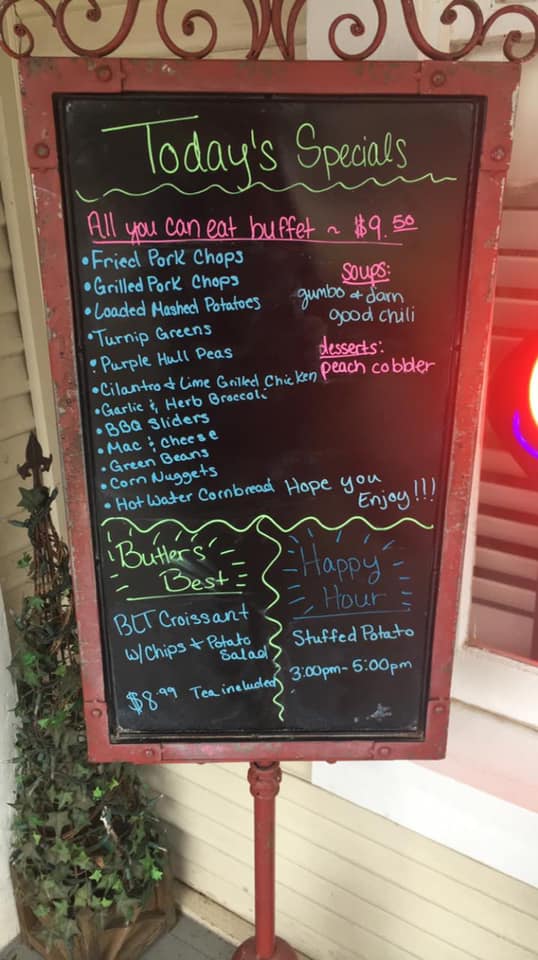 Today's Specials
All you can eat buffet ~ $9.50
• Fried Pork Chops
• Grilled Pork Chops
• Loaded Mashed Potatoes
• Turnip Greens
• Purple Hull Peas
• Cilantro & Lime Grilled Chicken
• Garlic & Herb Broccoli
• BBQ Sliders
• Mac & Cheese
• Green Beans
• Corn Nuggets
• Hot Water Cornbread
soups:
gumbo & darn
good chili
desserts:
peach cobbler
Hope you
Enjoy!!!
Butlers
Best
BLT Croissant
w/Chips & Potato
Salad
$8.99 Tea included
Happy
Hour
Stuffed Potato
3:00pm-5:00pm